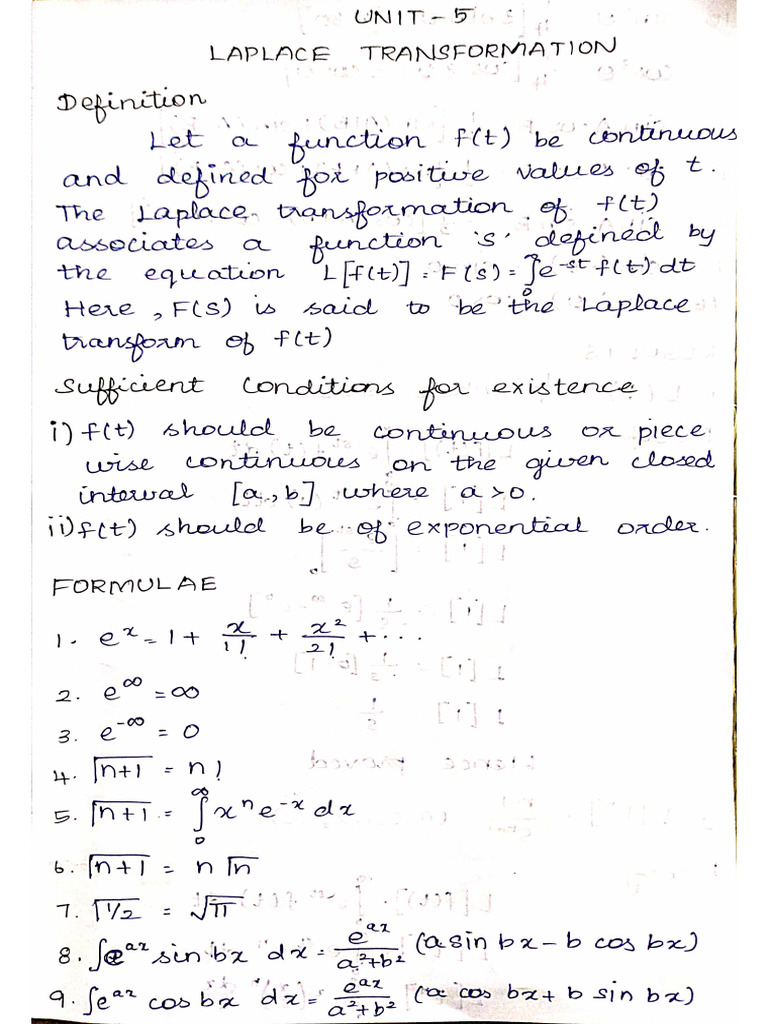 UNIT - 5
LAPLACE TRANSFORMATION
Definition
Let a function f(t) be continuous
and defined for positive values of t.
The Laplace transformation of f(t)
associates a function 's' defined by
the equation L[f(t)] = F(s) = ∫₀^∞ e^-st f(t) dt
Here, F(s) is said to be the Laplace
transform of f(t)
Sufficient Conditions for existence
i) f(t) should be continuous or piece
wise continuous on the given closed
interval [a, b] where a > 0.
ii) f(t) should be of exponential order.
FORMULAE
1. e^x = 1 + x/1! + x²/2! + ...
2. e^∞ = ∞
3. e^-∞ = 0
4. Γn+1 = n!
5. Γn+1 = ∫₀^∞ x^n e^-x dx
6. Γn+1 = n Γn
7. Γ1/2 = √π
8. ∫e^ax sin bx dx = e^ax/(a²+b²) (a sin bx - b cos bx)
9. ∫e^ax cos bx dx = e^ax/(a²+b²) (a cos bx + b sin bx)